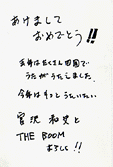 あけまして
おめでとう!!
去年はたくさん四国で
うたがうたえました
今年はもっとうたいたい
宮沢和史と
THE BOOM
よろしく!!